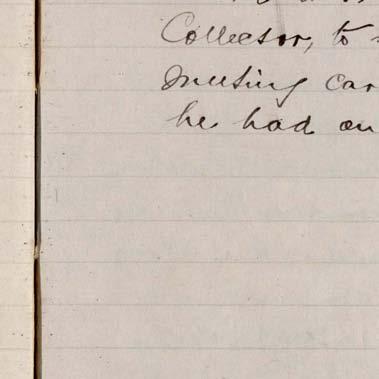 Collector, to
meeting car
he had on